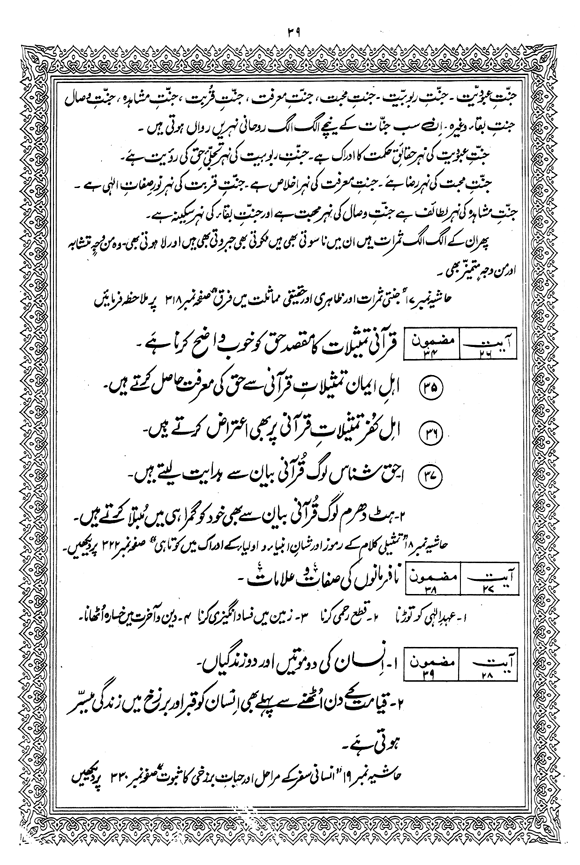 ۳۹
جنتِ عبودیت ۔ جنتِ ربوبیت ۔ جنتِ محبت، جنتِ معرفت، جنتِ قُربت، جنتِ مشاہدہ، جنتِ وصال
جنتِ بقاء وغیرہ ۔ ان سب جنّات کے نیچے الگ الگ روحانی نہریں رواں ہوتی ہیں ۔
جنتِ عبودیت کی نہر حقائقِ حکمت کا ادراک ہے ۔ جنتِ ربوبیت کی نہر تجلیٔ حق کی رؤیت ہے ۔
جنتِ محبت کی نہر رضا ہے ۔ جنتِ معرفت کی نہر اخلاص ہے ۔ جنتِ قربت کی نہر نورِ صفاتِ الٰہی ہے ۔
جنتِ مشاہدہ کی نہر لطائف ہے جنتِ وصال کی نہر محبت ہے اور جنتِ بقاء کی نہر سکینہ ہے ۔
پھر ان کے الگ الگ ثمرات ہیں ان میں ناسوتی بھی ہیں ملکوتی بھی ہیں جبروتی بھی ہیں اور لاہوتی بھی ۔ وہ من وجہٍ متشابہ
اور من وجہٍ متمیّز بھی ۔
حاشیہ نمبر ۱۷ "جنتی ثمرات اور ظاہری اور حقیقی مماثلت میں فرق" صفحہ نمبر ۳۱۸ پر ملاحظہ فرمائیں
آیت ۲۶ مضمون ۳۴ قرآنی تمثیلات کا مقصد حق کو خوب واضح کرنا ہے ۔
۳۵ اہلِ ایمان تمثیلاتِ قرآنی سے حق کی معرفت حاصل کرتے ہیں ۔
۳۶ اہلِ کفر تمثیلاتِ قرآنی پر بھی اعتراض کرتے ہیں ۔
۳۷ ۱۔ حق شناس لوگ قُرآنی بیان سے ہدایت لیتے ہیں ۔
۲۔ ہٹ دھرم لوگ قُرآنی بیان سے بھی خود کو گمراہی میں مُبتلا کرتے ہیں ۔
حاشیہ نمبر ۱۸ "تمثیلی کلام کے رموز اور شانِ انبیاء و اولیاء کے ادراک میں کوتاہی" صفحہ نمبر ۳۲۲ پر دیکھیں ۔
آیت ۲۷ مضمون ۳۸ نافرمانوں کی صفات و علامات ۔
۱۔ عہدِ الٰہی کو توڑنا ۲۔ قطع رحمی کرنا ۳۔ زمین میں فساد انگیزی کرنا ۴۔ دین و آخرت میں خسارہ اُٹھانا ۔
آیت ۲۸ مضمون ۳۹ ۱۔ اِنسان کی دو موتیں اور دو زندگیاں ۔
۲۔ قیامت کے دن اُٹھنے سے پہلے بھی اِنسان کو قبر اور برزخ میں زندگی میسّر
ہوتی ہے ۔
حاشیہ نمبر ۱۹ "انسانی سفر کے مراحل اور حیاتِ برزخی کا ثبوت" صفحہ نمبر ۳۳۰ پر دیکھیں